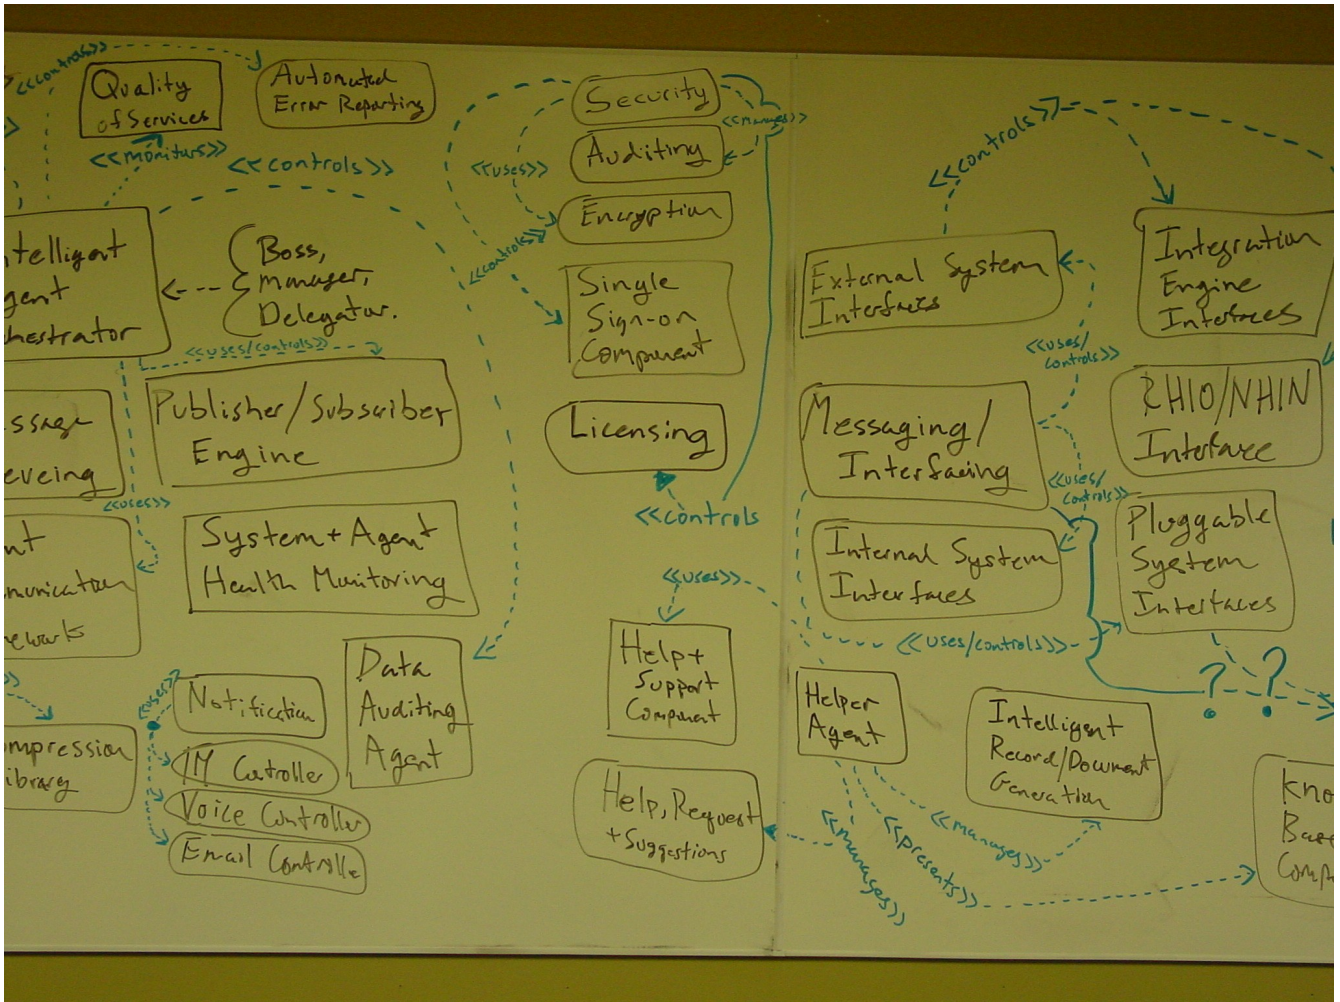 <<controls>>
Quality
of Services
Automated
Error Reporting
<<monitors>>
<<controls>>
ntelligent
gent
hestrator
Boss,
manager,
Delegator.
<<uses/controls>>
Publisher/Subscriber
Engine
ssage
eveing
<<uses>>
System + Agent
Health Monitoring
nt
munication
ework
Data
Auditing
Agent
<<uses>>
Notification
IM Controller
Voice Controller
Email Controller
ompression
ibrary
Security
<<manages>>
Auditing
<<uses>>
Encryption
<<controls>>
Single
Sign-on
Component
Licensing
<<controls
<<uses>>
Help +
Support
Component
Help, Request
+ Suggestions
<<controls>>
External System
Interfaces
Integration
Engine
Interfaces
<<uses/
controls>>
RHIO/NHIN
Interface
Messaging/
Interfacing
<<uses/
controls>>
Internal System
Interfaces
Pluggable
System
Interfaces
<<uses/controls>>
? ?
Helper
Agent
Intelligent
Record/Document
Generation
<<manages>>
<<presents>>
<<manages>>
Kno
Base
Comp